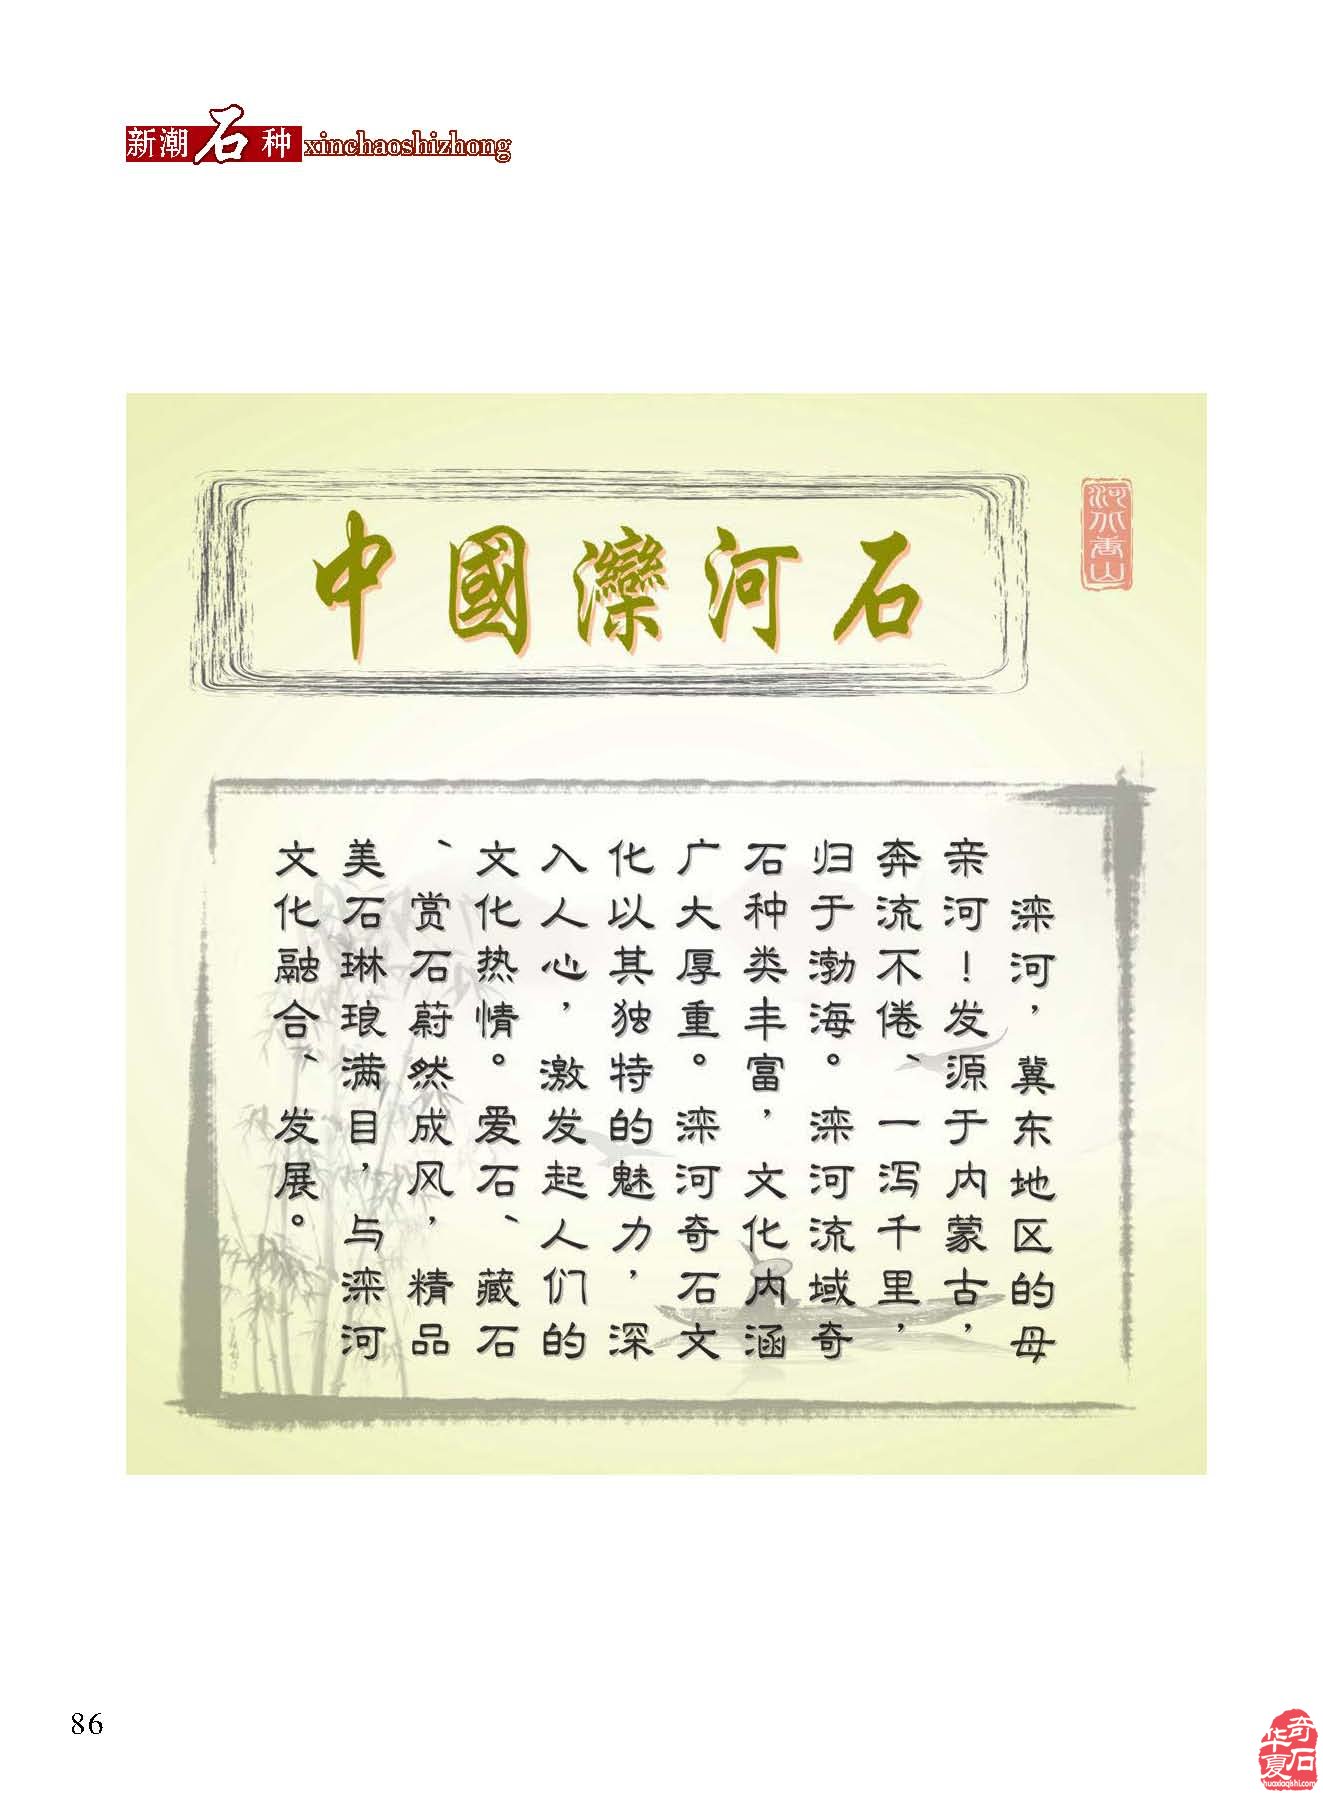 新潮石种 xinchaoshizhong
中國灤河石
河北唐山
滦河，冀东地区的母
亲河！发源于内蒙古，
奔流不倦、一泻千里，
归于渤海。滦河流域奇
石种类丰富，文化内涵
广大厚重。滦河奇石文
化以其独特的魅力，深
入人心，激发起人们的
文化热情。爱石、藏石
、赏石蔚然成风，精品
美石琳琅满目，与滦河
文化融合、发展。
86
华夏奇石
huaxiaqishi.com